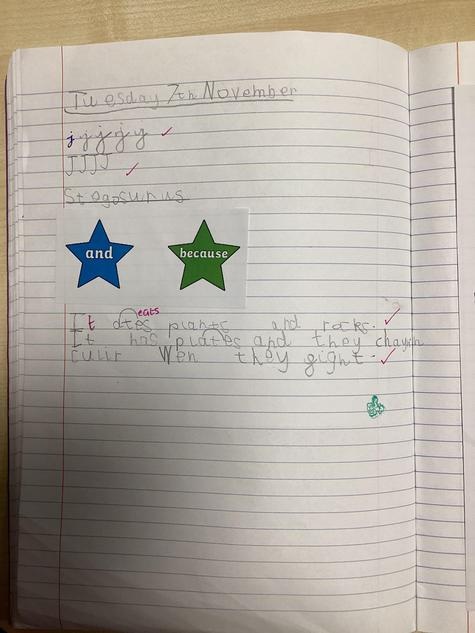 Tuesday 7th November
j j j j j j
J J J J
Stogosurus
and because
eats
It otes plants and rocks.
It has plates and they chaynh
culir Wen they gight.